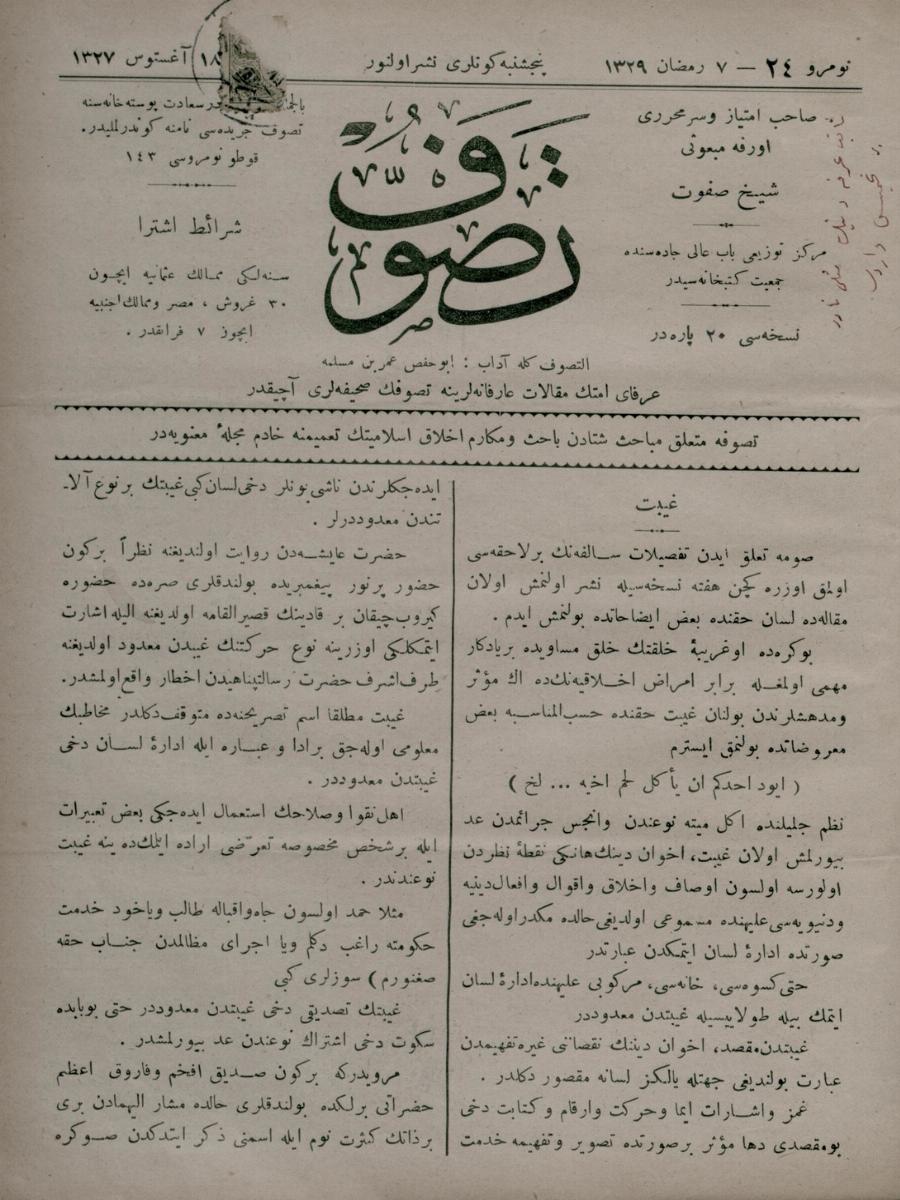 نومرو ٢٤ — ٧ رمضان ١٣٢٩
پنجشنبه كونلری نشر اولنور
١٨ آغستوس ١٣٢٧
صاحب امتياز وسرمحرری
اورفه مبعوثی
شيخ صفوت
مركز توزيعی باب عالی جاده‌سنده
جمعيت كتبخانه‌سيدر
نسخه‌سی ٢٠ پاره‌در
تصوف
درسعادت پوسته‌خانه‌سنه
تصوف جريده‌سی نامنه كوندرلمليدر.
قوطو نومروسی ١٤٣
شرائط اشترا
سنه‌لكی ممالك عثمانيه ايچون
٣٠ غروش ، مصر وممالك اجنبيه
ايچوز ٧ فرانقدر .
التصوف كله آداب : ابوحفص عمر بن مسلمه
عرفای امتك مقالات عارفانه‌لرينه تصوفك صحيفه‌لری آچيقدر
تصوفه متعلق مباحث شتادن باحث ومكارم اخلاق اسلاميتك تعميمنه خادم مجلهٔ معنويه‌در
غيبت
صومه تعلق ايدن تفصيلات سالفه‌نك برلاحقه‌سی
اولمق اوزره كچن هفته نسخه‌سيله نشر اولنمش اولان
مقاله‌ده لسان حقنده بعض ايضاحاتده بولنمش ايدم .
بوكره‌ده اوغريبهٔ خلقتك خلق مساويده بريادكار
مهمی اولمغله برابر امراض اخلاقيه‌نك‌ده اك مؤثر
ومدهشلرندن بولنان غيبت حقنده حسب‌المناسبه بعض
معروضاتده بولنمق ايسترم
( ايود احدكم ان يأكل لحم اخيه ... لخ )
نظم جليلنده اكل ميته نوعندن وانجس جرائمدن عد
بيورلمش اولان غيبت، اخوان دينك هانكی نقطهٔ نظردن
اولورسه اولسون اوصاف واخلاق واقوال وافعال‌دينيه
ودنيويه‌سی عليهنده مسموعی اولديغی حالده مكدراوله‌جغی
صورتده ادارهٔ لسان ايتمكدن عبارتدر
حتی كسوه‌سی، خانه‌سی، مركوبی عليهنده‌ادارهٔ لسان
ايتمك بيله طولاييسيله غيبتدن معدوددر
غيبتدن‌مقصد، اخوان ديننك نقصاننی غيره‌تفهيمدن
عبارت بولنديغی جهتله يالكز لسانه مقصور دكلدر .
غمز واشارات ايما وحركت وارقام وكتابت دخی
بومقصدی دها مؤثر برصورتده تصوير وتفهيمه خدمت
ايده‌جكلرندن ناشی‌بونلر دخی‌لسان‌كبی‌غيبتك برنوع آلا-
تندن معدوددرلر .
حضرت عايشه‌دن روايت اولنديغنه نظراً بركون
حضور پرنور پيغمبريده بولندقلری صره‌ده حضوره
كيروب‌چيقان بر قادينك قصيرالقامه اولديغنه اليله‌اشارت
ايتمكلكی اوزرينه نوع حركتنك غيبدن معدود اولديغنه
طرف‌اشرف حضرت رسالتپناهيدن اخطار واقع‌اولمشدر.
غيبت مطلقا اسم تصريحنه‌ده متوقف دكلدر مخاطبك
معلومی اوله‌جق برادا و عباره ايله ادارهٔ لسان دخی
غيبتدن معدوددر .
اهل‌تقوا وصلاحك استعمال ايده‌جكی بعض تعبيرات
ايله برشخص مخصوصه تعرّضی اراده ايلك‌ده ينه غيبت
نوعندندر .
مثلا حمد اولسون جاه‌واقباله طالب وياخود خدمت
حكومته راغب دكلم ويا اجرای مظالمدن جناب حقه
صغنورم) سوزلری كبی
غيبتك تصديقی دخی غيبتدن معدوددر حتی بوبابده
سكوت دخی اشتراك نوعندن عد بيورلمشدر .
مرويدركه بركون صديق افخم وفاروق اعظم
حضراتی برلكده بولندقلری حالده مشار اليهمادن بری
برذاتك كثرت نوم ايله اسمنی ذكر ايتدكدن صوكره